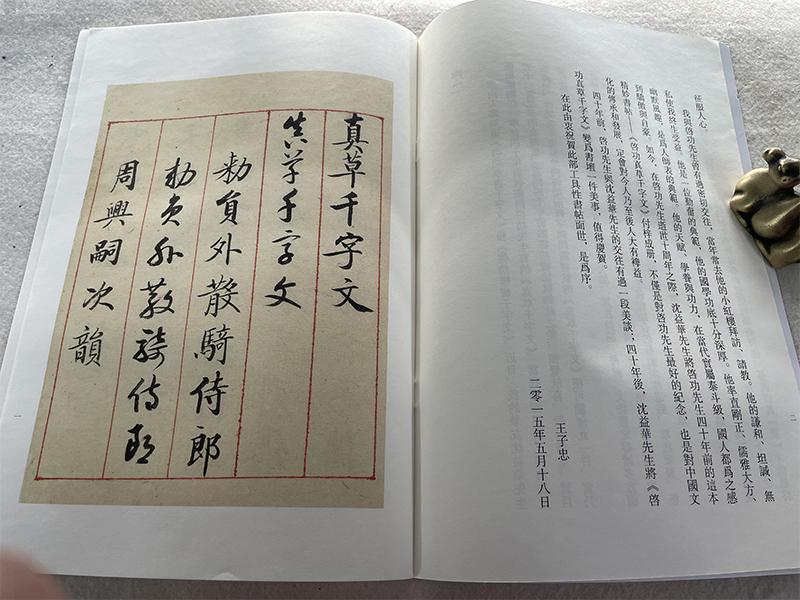 征服人心。
我與啓功先生曾有過密切交往，當年常去他的小紅樓拜訪、請教。他的謙和、坦誠、無
私使我終生受益。他是一位勤奮的典範，他的國學功底十分深厚。他率直剛正、儒雅大方、
幽默風趣，是爲人師表的典範。他的天賦、學養與功力，在當代實屬泰斗級，國人都爲之感
到驕傲與自豪。如今，在啓功先生逝世十周年之際，沈益華先生將啓功先生四十年前的這本
精妙書帖——《啓功真草千字文》付梓成册，不僅是對啓功先生最好的紀念，也是對中國文
化的傳承和發展，定會對今人乃至後人大有裨益。
四十年前，啓功先生與沈益華先生的交往有過一段美談；四十年後，沈益華先生將《啓
功真草千字文》變爲書壇一件美事，值得慶賀。
在此由衷祝賀此部工具性書帖面世，是爲序。
王子忠
二零一五年五月十八日
二
真草千字文
真草千字文
勅員外散騎侍郎
勅員外散騎侍郎
周興嗣次韻
一